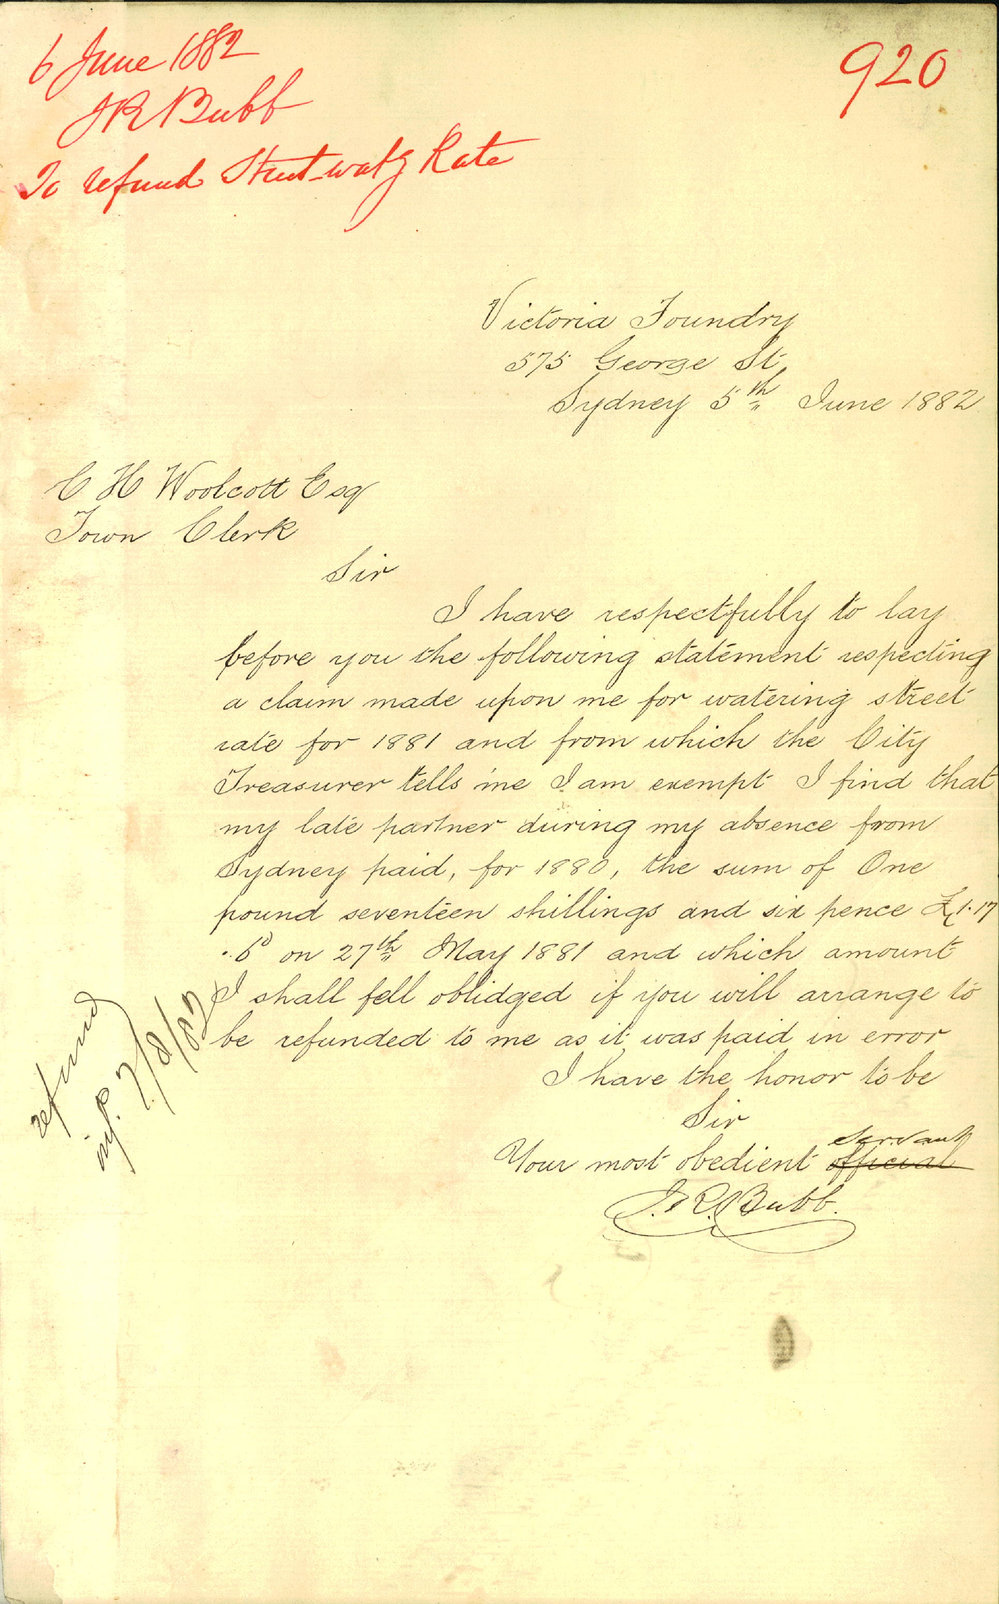 6 June 1882
920
J R Bubb
To refund Street watg Rate
Victoria Foundry
575 George St
Sydney 5th June 1882
C H Woolcott Esq
Town Clerk
Sir
I have respectfully to lay
before you the following statement respecting
a claim made upon me for watering street
rate for 1881 and from which the City
Treasurer tells me I am exempt I find that
my late partner during my absence from
Sydney paid, for 1880, the sum of One
pound seventeen shillings and six pence £1.17
.6d on 27th May 1881 and which amount
I shall fell oblidged if you will arrange to
be refunded to me as it was paid in error
I have the honor to be
Sir
servant
Your most obedient official
J. R. Bubb.
refund
7/8/82